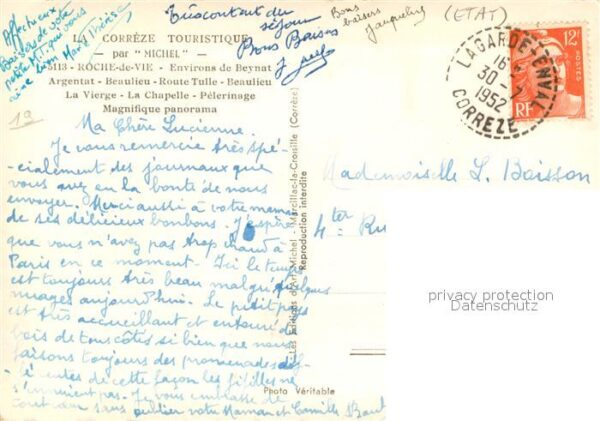 Affectueux
baisers de votre
petite M.T. qui vous
aime bien Marie Thérèse
Très contant du
séjour
Bons Baisers
Bons
baisers
Jacqueline
(ETAT)
LA CORRÈZE TOURISTIQUE
— par "MICHEL" —
5113 - ROCHE-de-VIE - Environs de Beynat
Argentat - Beaulieu - Route Tulle - Beaulieu
La Vierge - La Chapelle - Pélerinage
Magnifique panorama
19
Ma Chère Lucienne.
Je vous remercie très spé-
cialement des journaux que
vous avez eu la bonté de nous
envoyer. Merci aussi à votre maman
de ses délicieux bonbons. J'espère
que vous n'avez pas trop chaud à
Paris en ce moment - Ici le temps
est toujours très beau malgré quelques
nuages aujourd'hui. Le petit pays
est très accueillant et entouré de
bois de tous côtés si bien que nous
faisons toujours des promenades dif-
férentes de cette façon les fifilles ne
s'ennuient pas. Je vous embrasse de
tout cœur sans oublier votre Maman et Camille
Les Editions d'Art Michel - Marcillac-la-Croisille (Corrèze)
Reproduction interdite
Photo Véritable
LAGARDE-ENVAL
16 H
30
1952
CORREZE
12F
POSTES
RF
Mademoiselle L. Boisson
4 ter Ru
privacy protection
Datenschutz